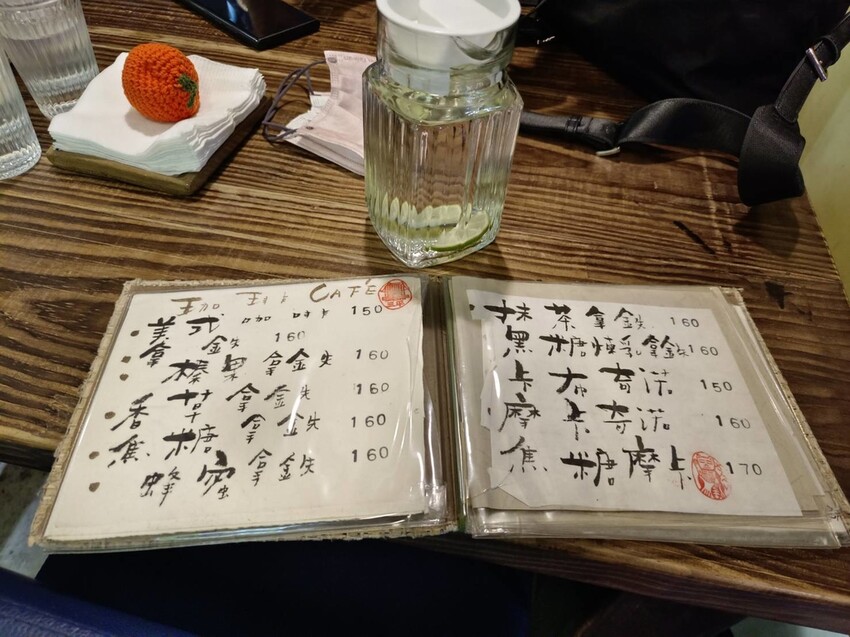 珈琲 CAFÉ
美式咖啡 150
拿鉄 160
榛果拿鉄 160
香草拿鉄 160
焦糖拿鉄 160
蜂蜜拿鉄 160
抹茶拿鉄 160
黑糖煉乳拿鉄 160
卡布奇諾 150
摩卡奇諾 160
焦糖摩卡 170